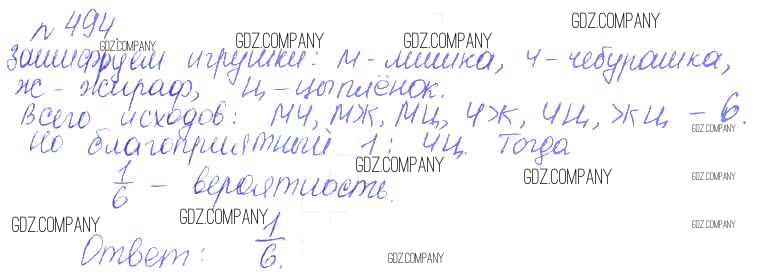 № 494.
Зашифруем игрушки: М - мишка, Ч - чебурашка,
Ж - жираф, Ц - цыплёнок.
Всего исходов: МЧ, МЖ, МЦ, ЧЖ, ЧЦ, ЖЦ - 6.
Но благоприятный 1: ЧЦ. Тогда
1/6 - вероятность.
Ответ: 1/6.
GDZ.COMPANY
GDZ.COMPANY
GDZ.COMPANY
GDZ.COMPANY
GDZ.COMPANY
GDZ.COMPANY
GDZ.COMPANY
GDZ.COMPANY
GDZ.COMPANY
GDZ.COMPANY
GDZ.COMPANY
GDZ.COMPANY
GDZ.COMPANY